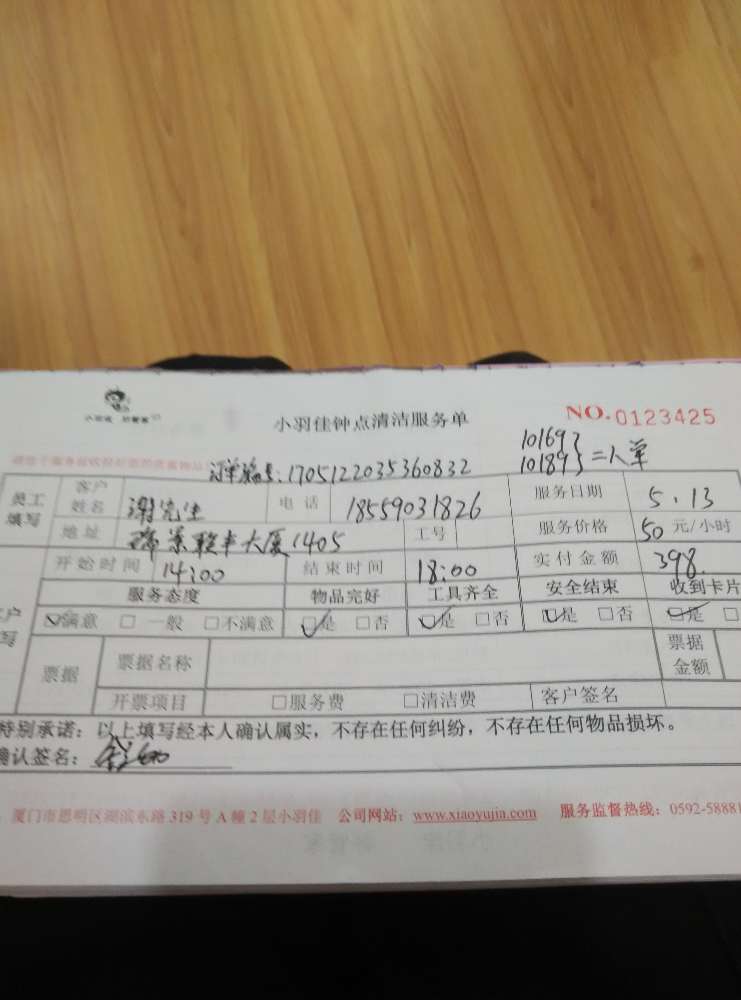 小羽佳钟点清洁服务单
NO.0123425
订单编号:1705122035360832
10169
10189 } =人单
员工填写 客户姓名 谢先生 电话 18559031826 服务日期 5.13
地址 瑞景联丰大厦1405 工号 服务价格 50元/小时
开始时间 14:00 结束时间 18:00 实付金额 398.
服务态度 物品完好 工具齐全 安全结束 收到卡片
☑满意 □一般 □不满意 ☑是 □否 ☑是 □否 ☑是 □否 ☑是 □
票据 票据名称 票据金额
开票项目 □服务费 □清洁费 客户签名
特别承诺:以上填写经本人确认属实,不存在任何纠纷,不存在任何物品损坏。
确认签名:
厦门市思明区湖滨东路319号A幢2层小羽佳 公司网站:www.xiaoyujia.com 服务监督热线:0592-58881